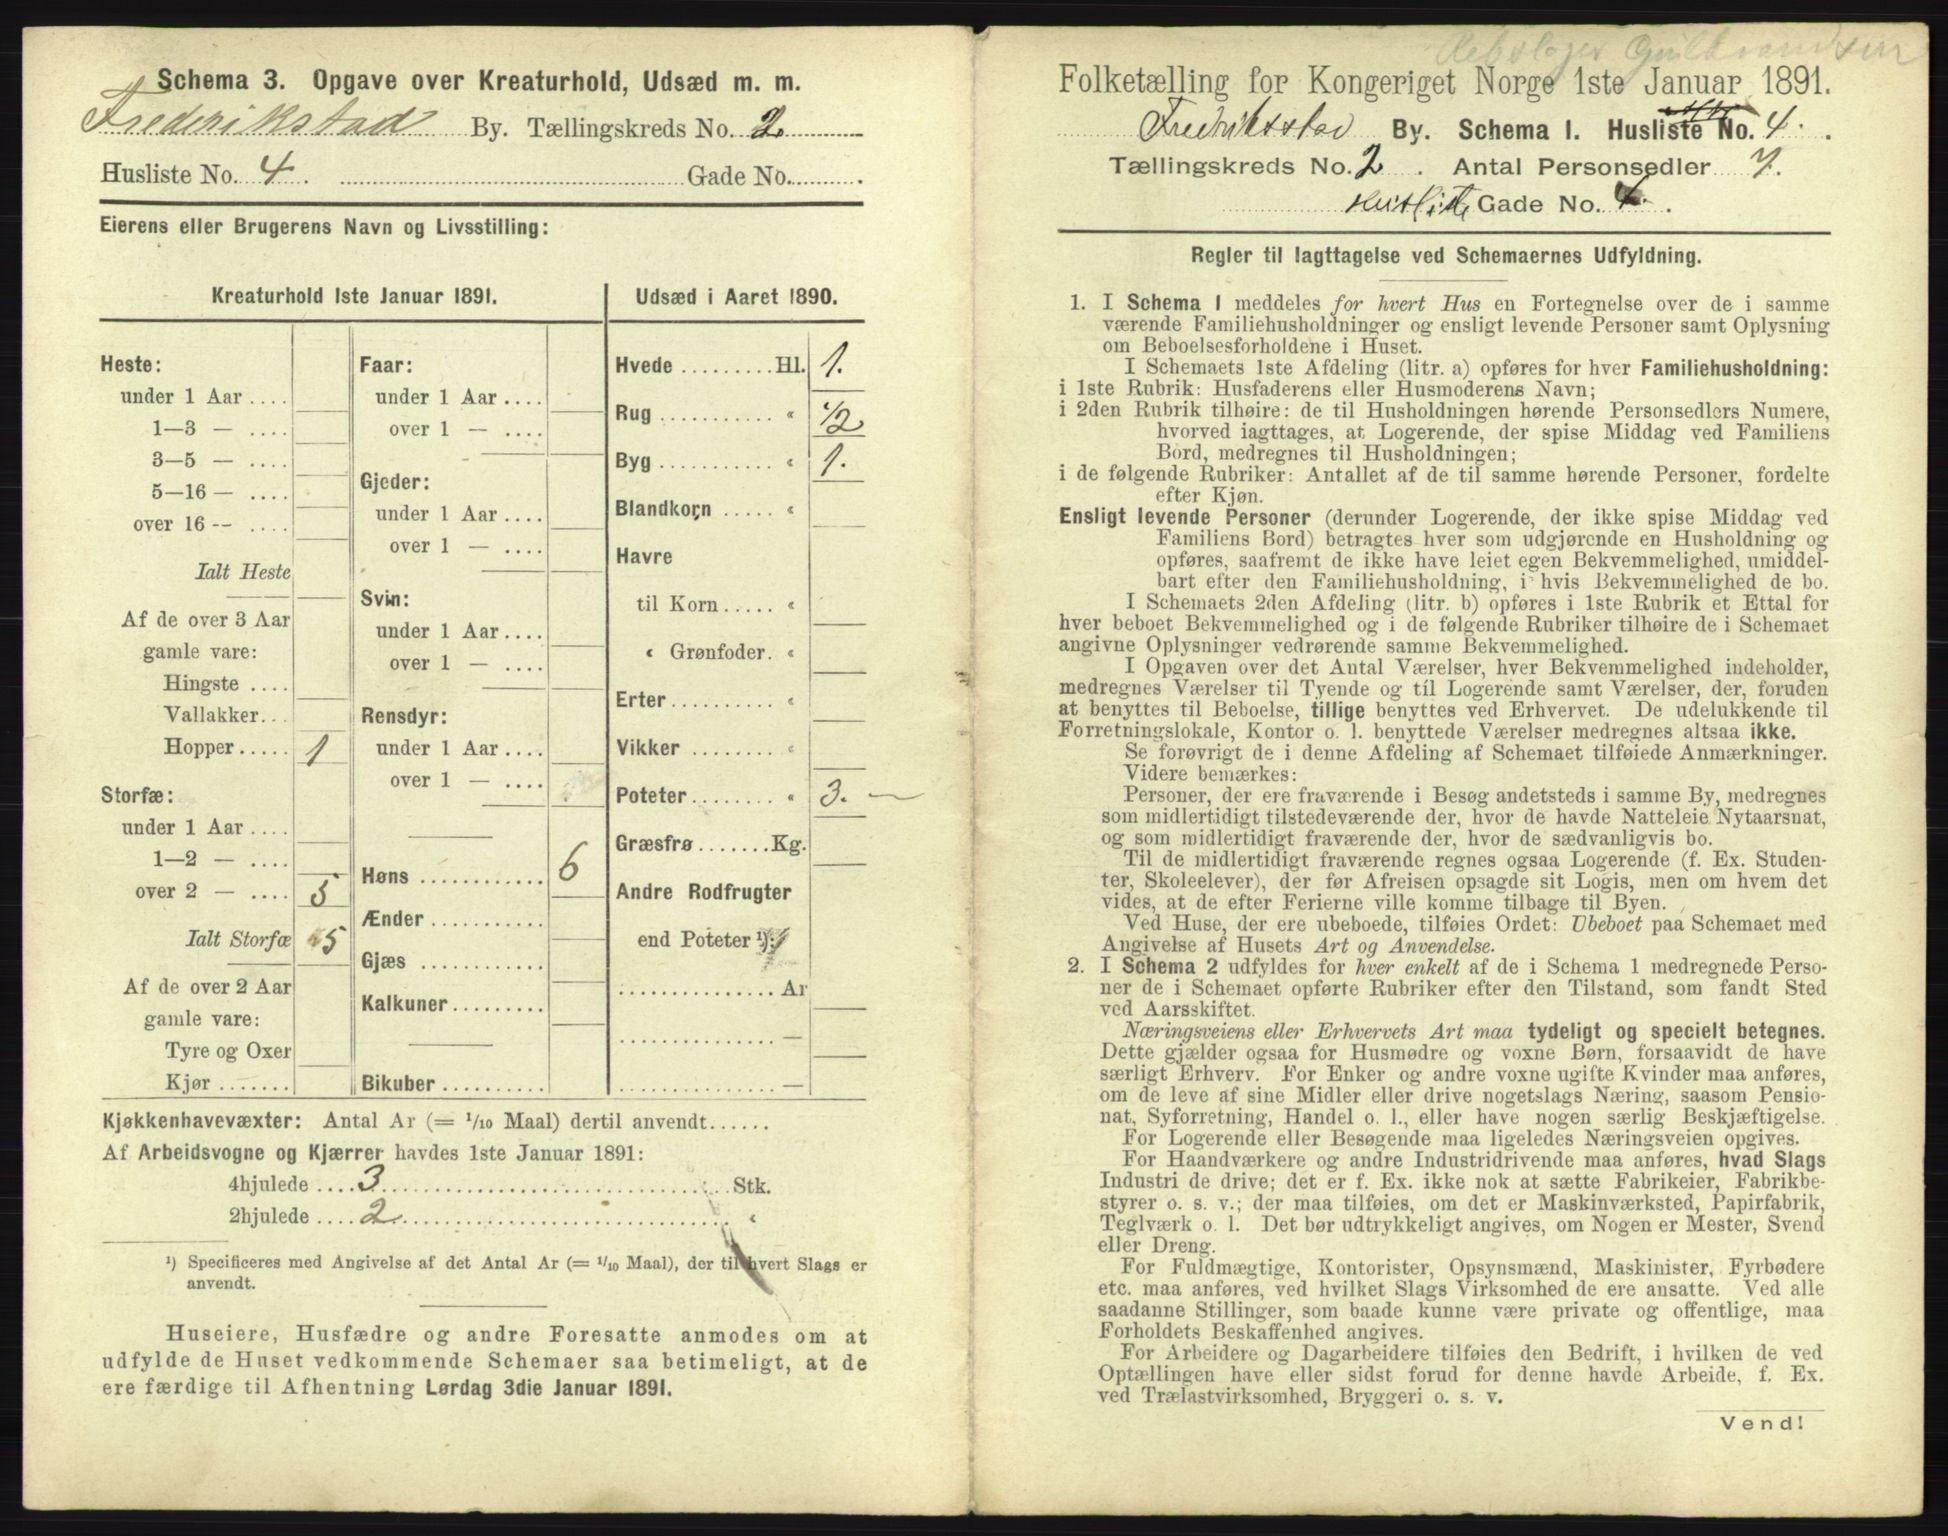 Schema 3. Opgave over Kreaturhold, Udsæd m. m.
Frederikstad By. Tællingskreds No. 2
Husliste No. 4. Gade No.
Eierens eller Brugerens Navn og Livsstilling:
Kreaturhold 1ste Januar 1891.
Heste:
under 1 Aar ....
1—3 — ....
3—5 — ....
5—16 — ....
over 16 -- ....
Ialt Heste
Af de over 3 Aar
gamle vare:
Hingste ....
Vallakker...
Hopper..... 1
Storfæ:
under 1 Aar ....
1—2 — ....
over 2 — .... 5
Ialt Storfæ 5
Af de over 2 Aar
gamle vare:
Tyre og Oxer
Kjør .......
Faar:
under 1 Aar ....
over 1 — ....
Gjeder:
under 1 Aar ....
over 1 — ....
Svin:
under 1 Aar ....
over 1 — ....
Rensdyr:
under 1 Aar ....
over 1 — ....
Høns ............ 6
Ænder ............
Gjæs ............
Kalkuner.........
Bikuber ..........
Udsæd i Aaret 1890.
Hvede .........Hl. 1.
Rug ............ « 1/2
Byg ............ « 1.
Blandkorn ..... «
Havre
til Korn ..... «
« Grønfoder. «
Erter .......... «
Vikker ........ «
Poteter ........ « 3. —
Græsfrø .......Kg.
Andre Rodfrugter
end Poteter ¹):
............... Ar
............... —
............... —
Kjøkkenhavevæxter: Antal Ar (= 1/10 Maal) dertil anvendt......
Af Arbeidsvogne og Kjærrer havdes 1ste Januar 1891:
4hjulede .... 3 ........ Stk.
2hjulede .... 2 ........ «
¹) Specificeres med Angivelse af det Antal Ar (= 1/10 Maal), der til hvert Slags er
anvendt.
Huseiere, Husfædre og andre Foresatte anmodes om at
udfylde de Huset vedkommende Schemaer saa betimeligt, at de
ere færdige til Afhentning Lørdag 3die Januar 1891.
Rebslager Gulbrandsen
Folketælling for Kongeriget Norge 1ste Januar 1891.
Fredriksstad By. Schema I. Husliste No. 4.
Tællingskreds No. 2. Antal Personsedler 7.
Husliste Gade No. 4.
Regler til Iagttagelse ved Schemaernes Udfyldning.
1. I Schema 1 meddeles for hvert Hus en Fortegnelse over de i samme
værende Familiehusholdninger og ensligt levende Personer samt Oplysning
om Beboelsesforholdene i Huset.
I Schemaets 1ste Afdeling (litr. a) opføres for hver Familiehusholdning:
i 1ste Rubrik: Husfaderens eller Husmoderens Navn;
i 2den Rubrik tilhøire: de til Husholdningen hørende Personsedlers Numere,
hvorved iagttages, at Logerende, der spise Middag ved Familiens
Bord, medregnes til Husholdningen;
i de følgende Rubriker: Antallet af de til samme hørende Personer, fordelte
efter Kjøn.
Ensligt levende Personer (derunder Logerende, der ikke spise Middag ved
Familiens Bord) betragtes hver som udgjørende en Husholdning og
opføres, saafremt de ikke have leiet egen Bekvemmelighed, umiddel-
bart efter den Familiehusholdning, i hvis Bekvemmelighed de bo.
I Schemaets 2den Afdeling (litr. b) opføres i 1ste Rubrik et Ettal for
hver beboet Bekvemmelighed og i de følgende Rubriker tilhøire de i Schemaet
angivne Oplysninger vedrørende samme Bekvemmelighed.
I Opgaven over det Antal Værelser, hver Bekvemmelighed indeholder,
medregnes Værelser til Tyende og til Logerende samt Værelser, der, foruden
at benyttes til Beboelse, tillige benyttes ved Erhvervet. De udelukkende til
Forretningslokale, Kontor o. l. benyttede Værelser medregnes altsaa ikke.
Se forøvrigt de i denne Afdeling af Schemaet tilføiede Anmærkninger.
Videre bemærkes:
Personer, der ere fraværende i Besøg andetsteds i samme By, medregnes
som midlertidigt tilstedeværende der, hvor de havde Natteleie Nytaarsnat,
og som midlertidigt fraværende der, hvor de sædvanligvis bo.
Til de midlertidigt fraværende regnes ogsaa Logerende (f. Ex. Studen-
ter, Skoleelever), der før Afreisen opsagde sit Logis, men om hvem det
vides, at de efter Ferierne ville komme tilbage til Byen.
Ved Huse, der ere ubeboede, tilføies Ordet: Ubeboet paa Schemaet med
Angivelse af Husets Art og Anvendelse.
2. I Schema 2 udfyldes for hver enkelt af de i Schema 1 medregnede Perso-
ner de i Schemaet opførte Rubriker efter den Tilstand, som fandt Sted
ved Aarsskiftet.
Næringsveiens eller Erhvervets Art maa tydeligt og specielt betegnes.
Dette gjælder ogsaa for Husmødre og voxne Børn, forsaavidt de have
særligt Erhverv. For Enker og andre voxne ugifte Kvinder maa anføres,
om de leve af sine Midler eller drive nogetslags Næring, saasom Pensio-
nat, Syforretning, Handel o. l., eller have nogen særlig Beskjæftigelse.
For Logerende eller Besøgende maa ligeledes Næringsveien opgives.
For Haandværkere og andre Industridrivende maa anføres, hvad Slags
Industri de drive; det er f. Ex. ikke nok at sætte Fabrikeier, Fabrikbe-
styrer o. s. v.; der maa tilføies, om det er Maskinværksted, Papirfabrik,
Teglværk o. l. Det bør udtrykkeligt angives, om Nogen er Mester, Svend
eller Dreng.
For Fuldmægtige, Kontorister, Opsynsmænd, Maskinister, Fyrbødere
etc. maa anføres, ved hvilket Slags Virksomhed de ere ansatte. Ved alle
saadanne Stillinger, som baade kunne være private og offentlige, maa
Forholdets Beskaffenhed angives.
For Arbeidere og Dagarbeidere tilføies den Bedrift, i hvilken de ved
Optællingen have eller sidst forud for denne havde Arbeide, f. Ex.
ved Trælastvirksomhed, Bryggeri o. s. v.
Vend!